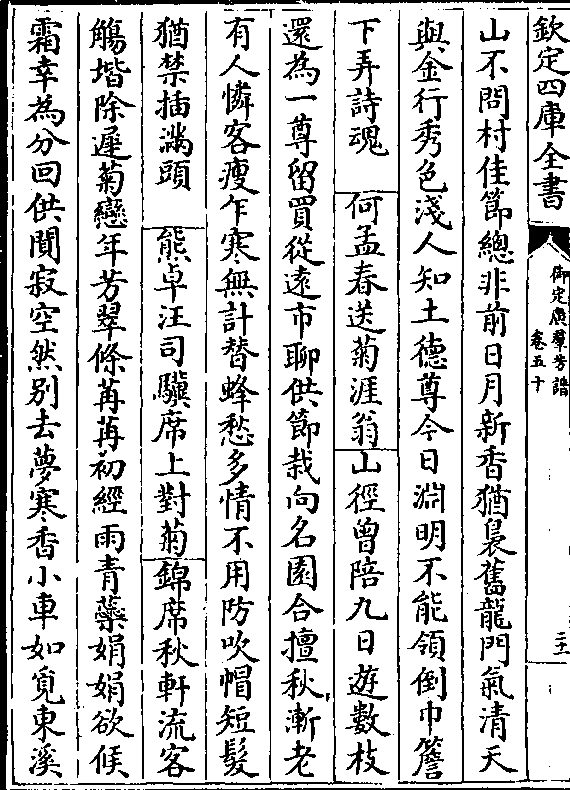 欽定四庫全書
御定廣羣芳譜
卷五十
山不問村佳節總非前日月新香猶裊舊龍門氣清天
與金行秀色淺人知土德尊今日淵明不能領倒巾簷
下弄詩魂 何孟春送菊涯翁 山徑曾陪九日遊數枝
還為一尊留買從遠市聊供節栽向名園合擅秋漸老
有人憐客瘦乍寒無計替蜂愁多情不用防吹帽短髮
猶禁插滿頭 熊卓汪司驥席上對菊 錦席秋軒流客
觴堦除遲菊戀年芳翠條苒苒初經雨青蘂娟娟欲候
霜幸為分回供閴寂空然別去夢寒香小車如覓東溪